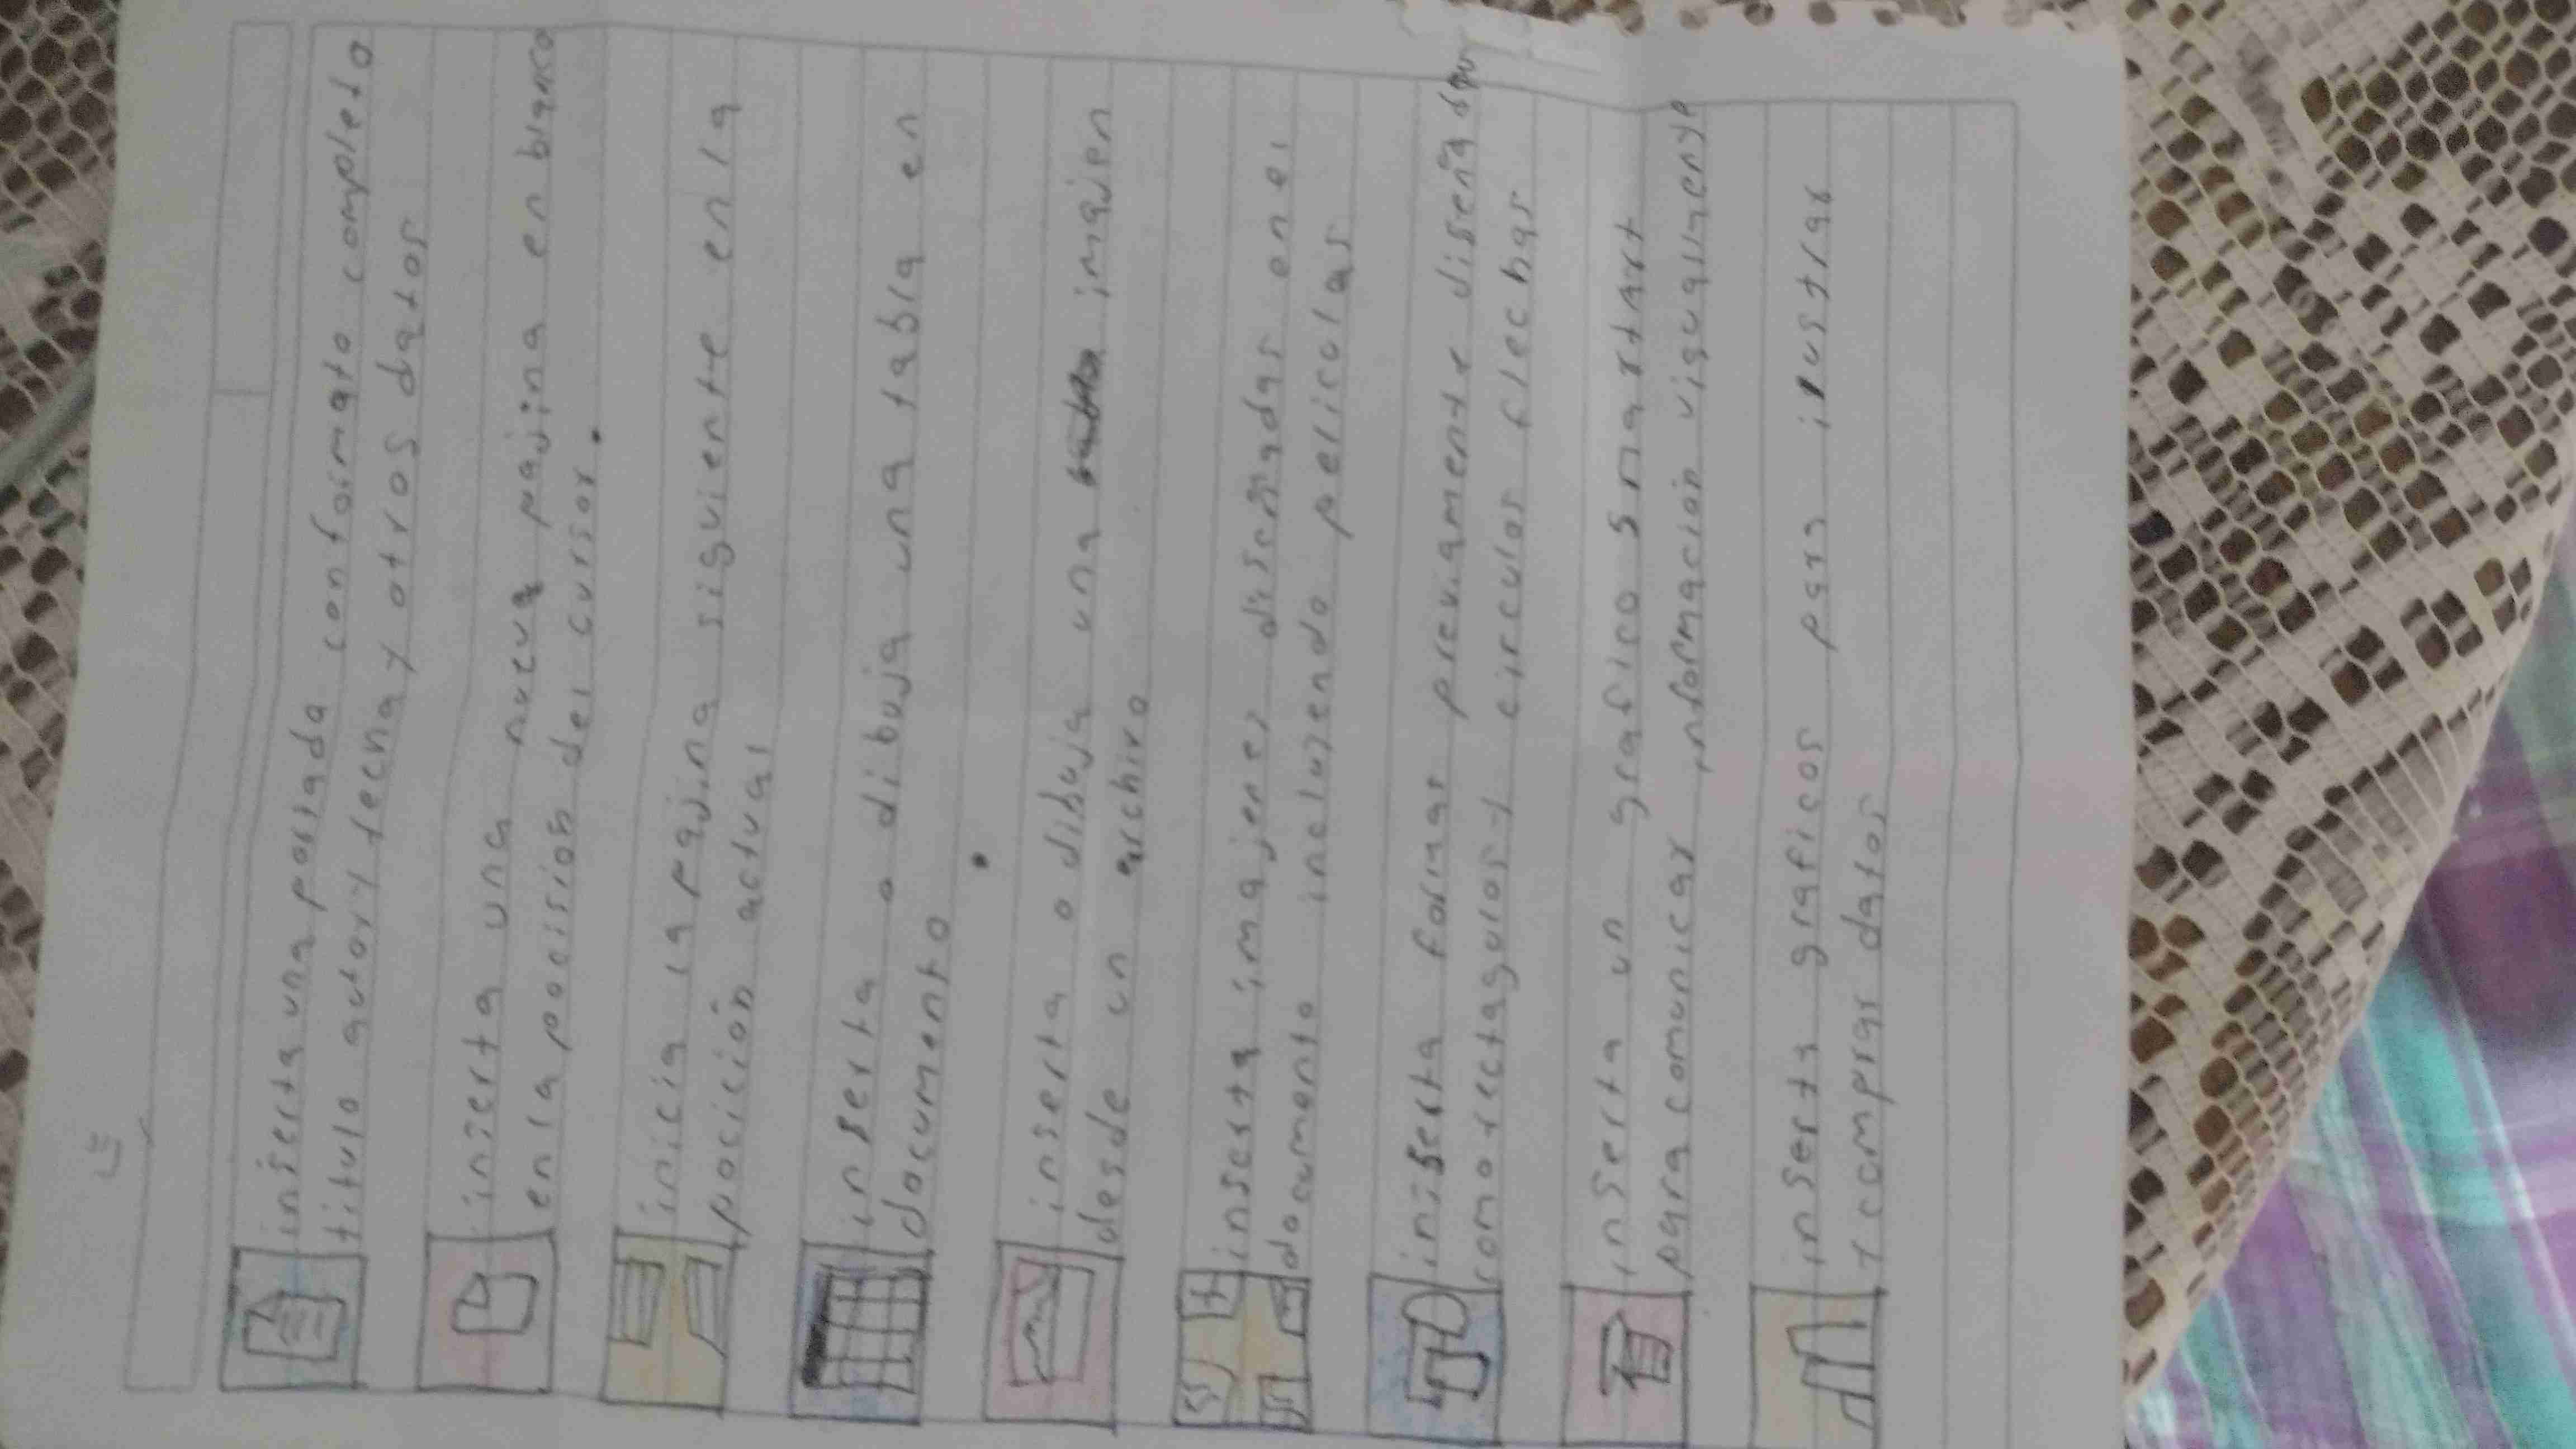 inserta una portada con formato completo
titulo autor y fecha y otros datos
inserta una nueva pajina en blanco
en la pocision del cursor.
inicia la pajina siguiente en la
pocición actual
inserta o dibuja una tabla en
documento
inserta o dibuja una imajien
desde un archivo
inserta imajenes diseñadas en el
documento incluzendo peliculas
inserta formas previamente diseña
como rectagulos y circulos flechas
inserta un grafico smartart
para comunicar informacion
inserta graficos para ilustrar
y comprar datos